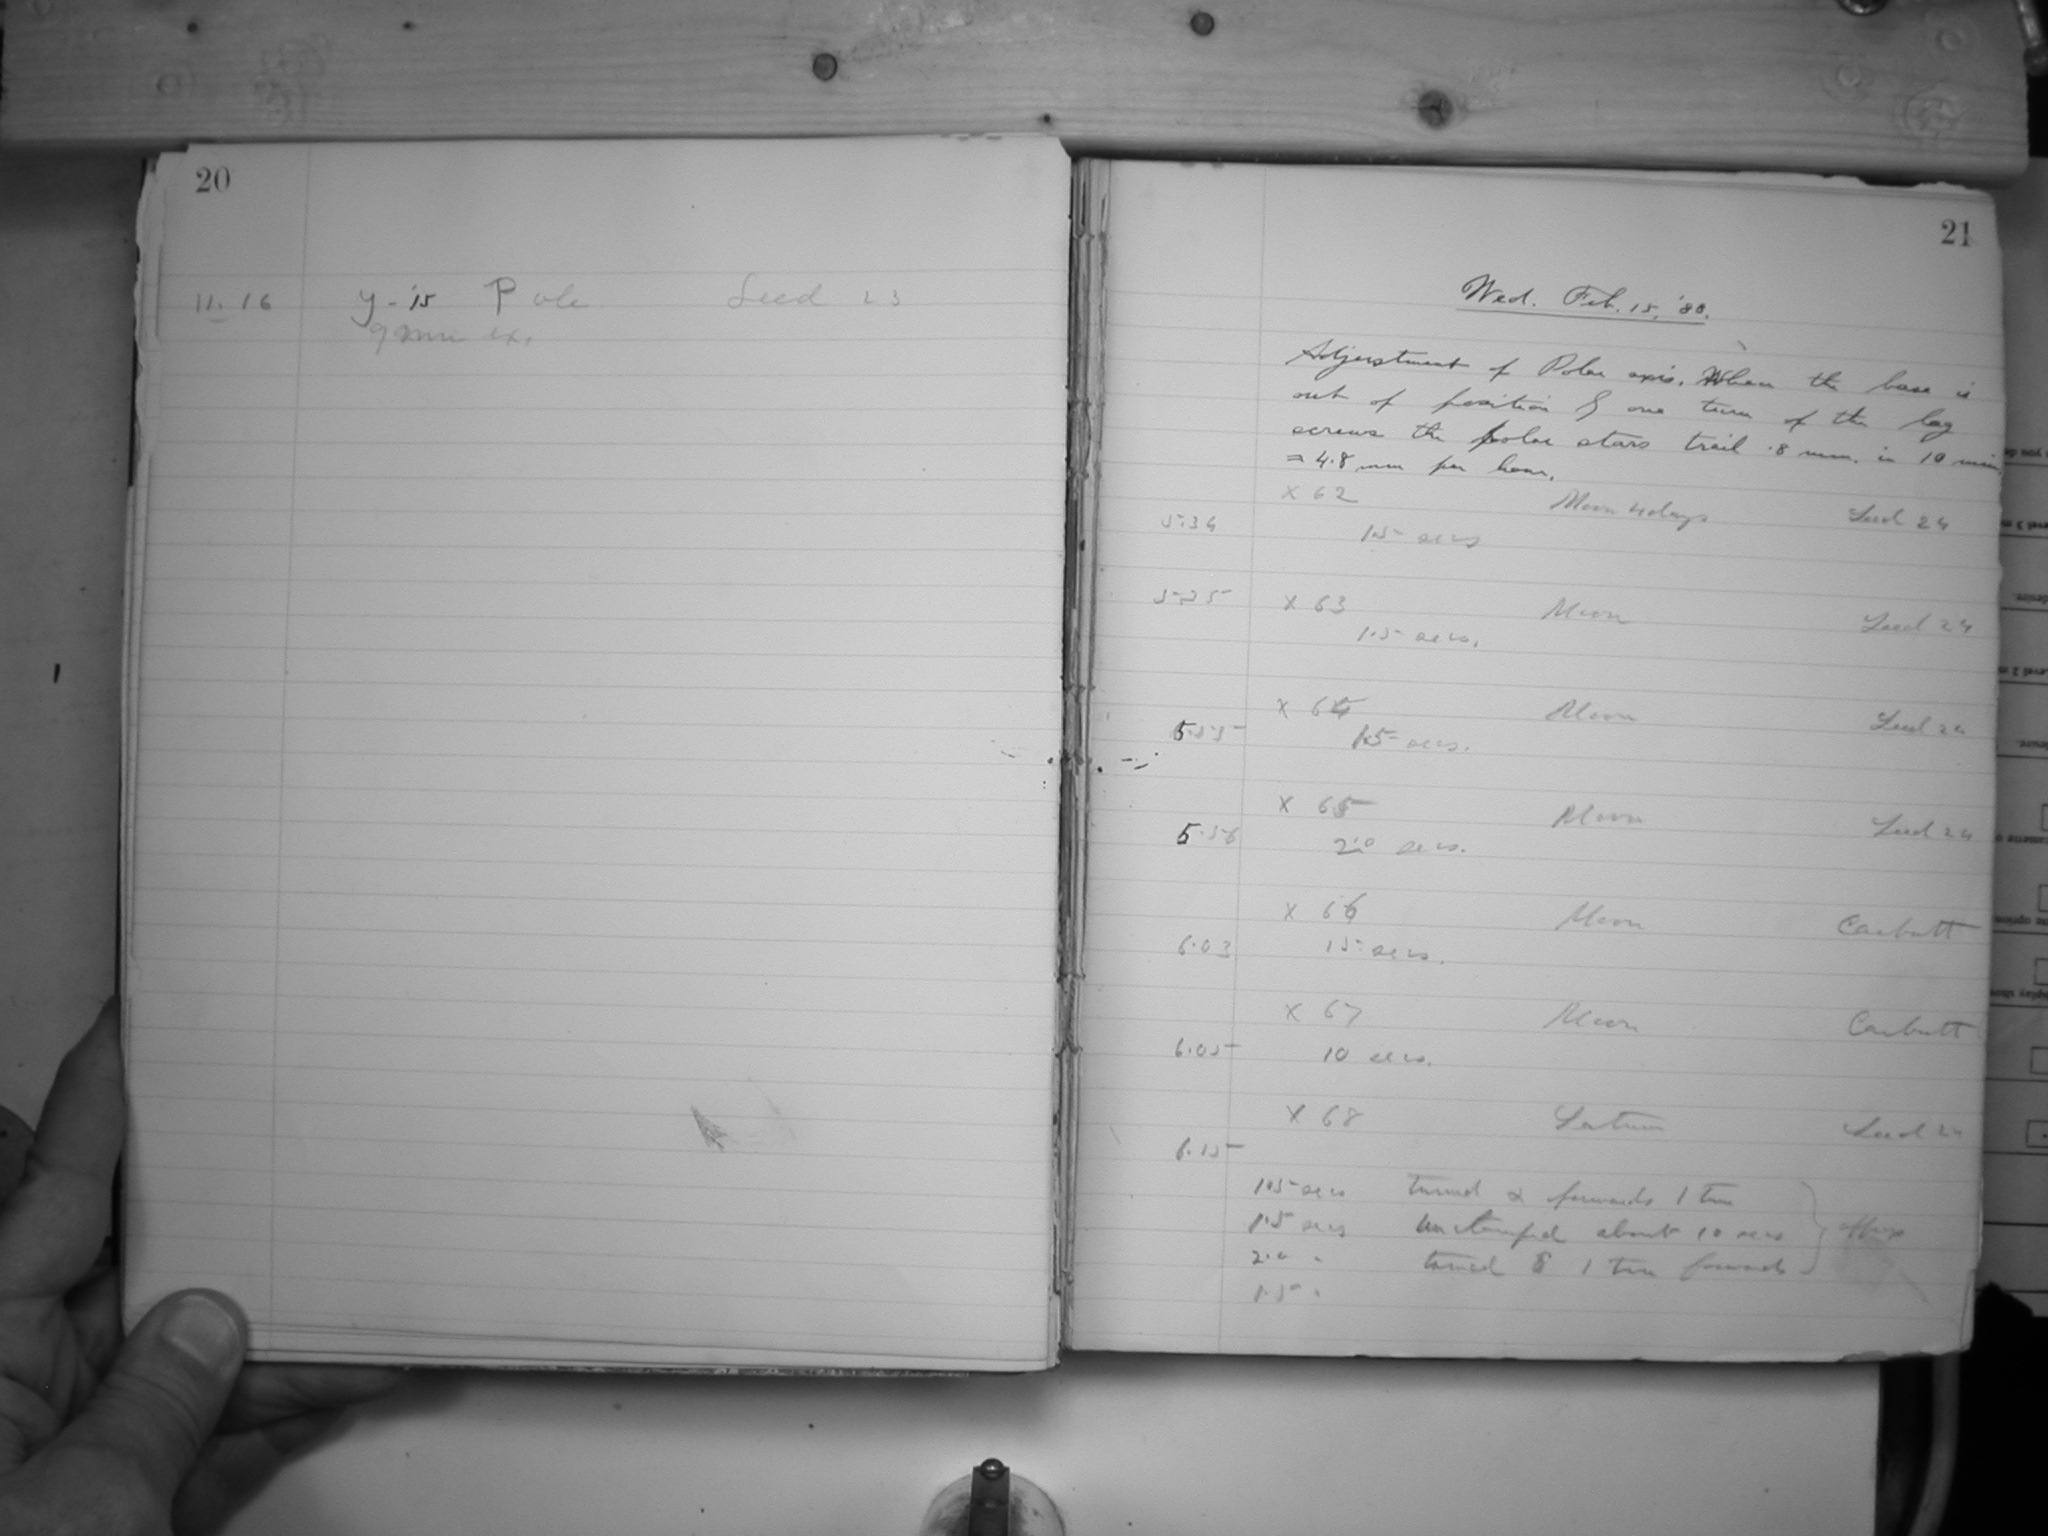 20
11.16 y-15 Pole Seed 23
9 min ex.
21
Wed. Feb. 15, '88.
Adjustment of Polar axis. When the base is
out of position by one turn of the lag
screws the polar stars trail .8 mm. in 10 min.
= 4.8 mm per hour.
X 62 Moon 4 days Seed 24
5.34 1.5 secs
5.35 X 63 Moon Seed 24
1.5 secs.
X 64 Moon Seed 24
5.55 1.5 secs.
X 65 Moon Seed 24
5.56 2.0 secs.
X 66 Moon Carbutt
6.03 15 secs.
X 67 Moon Carbutt
6.05 10 secs.
X 68 Saturn Seed 24
6.15
1.5 secs turned α forwards 1 turn
1.5 secs Unclamped about 10 secs
2.0 " turned δ 1 turn forwards
1.5 "